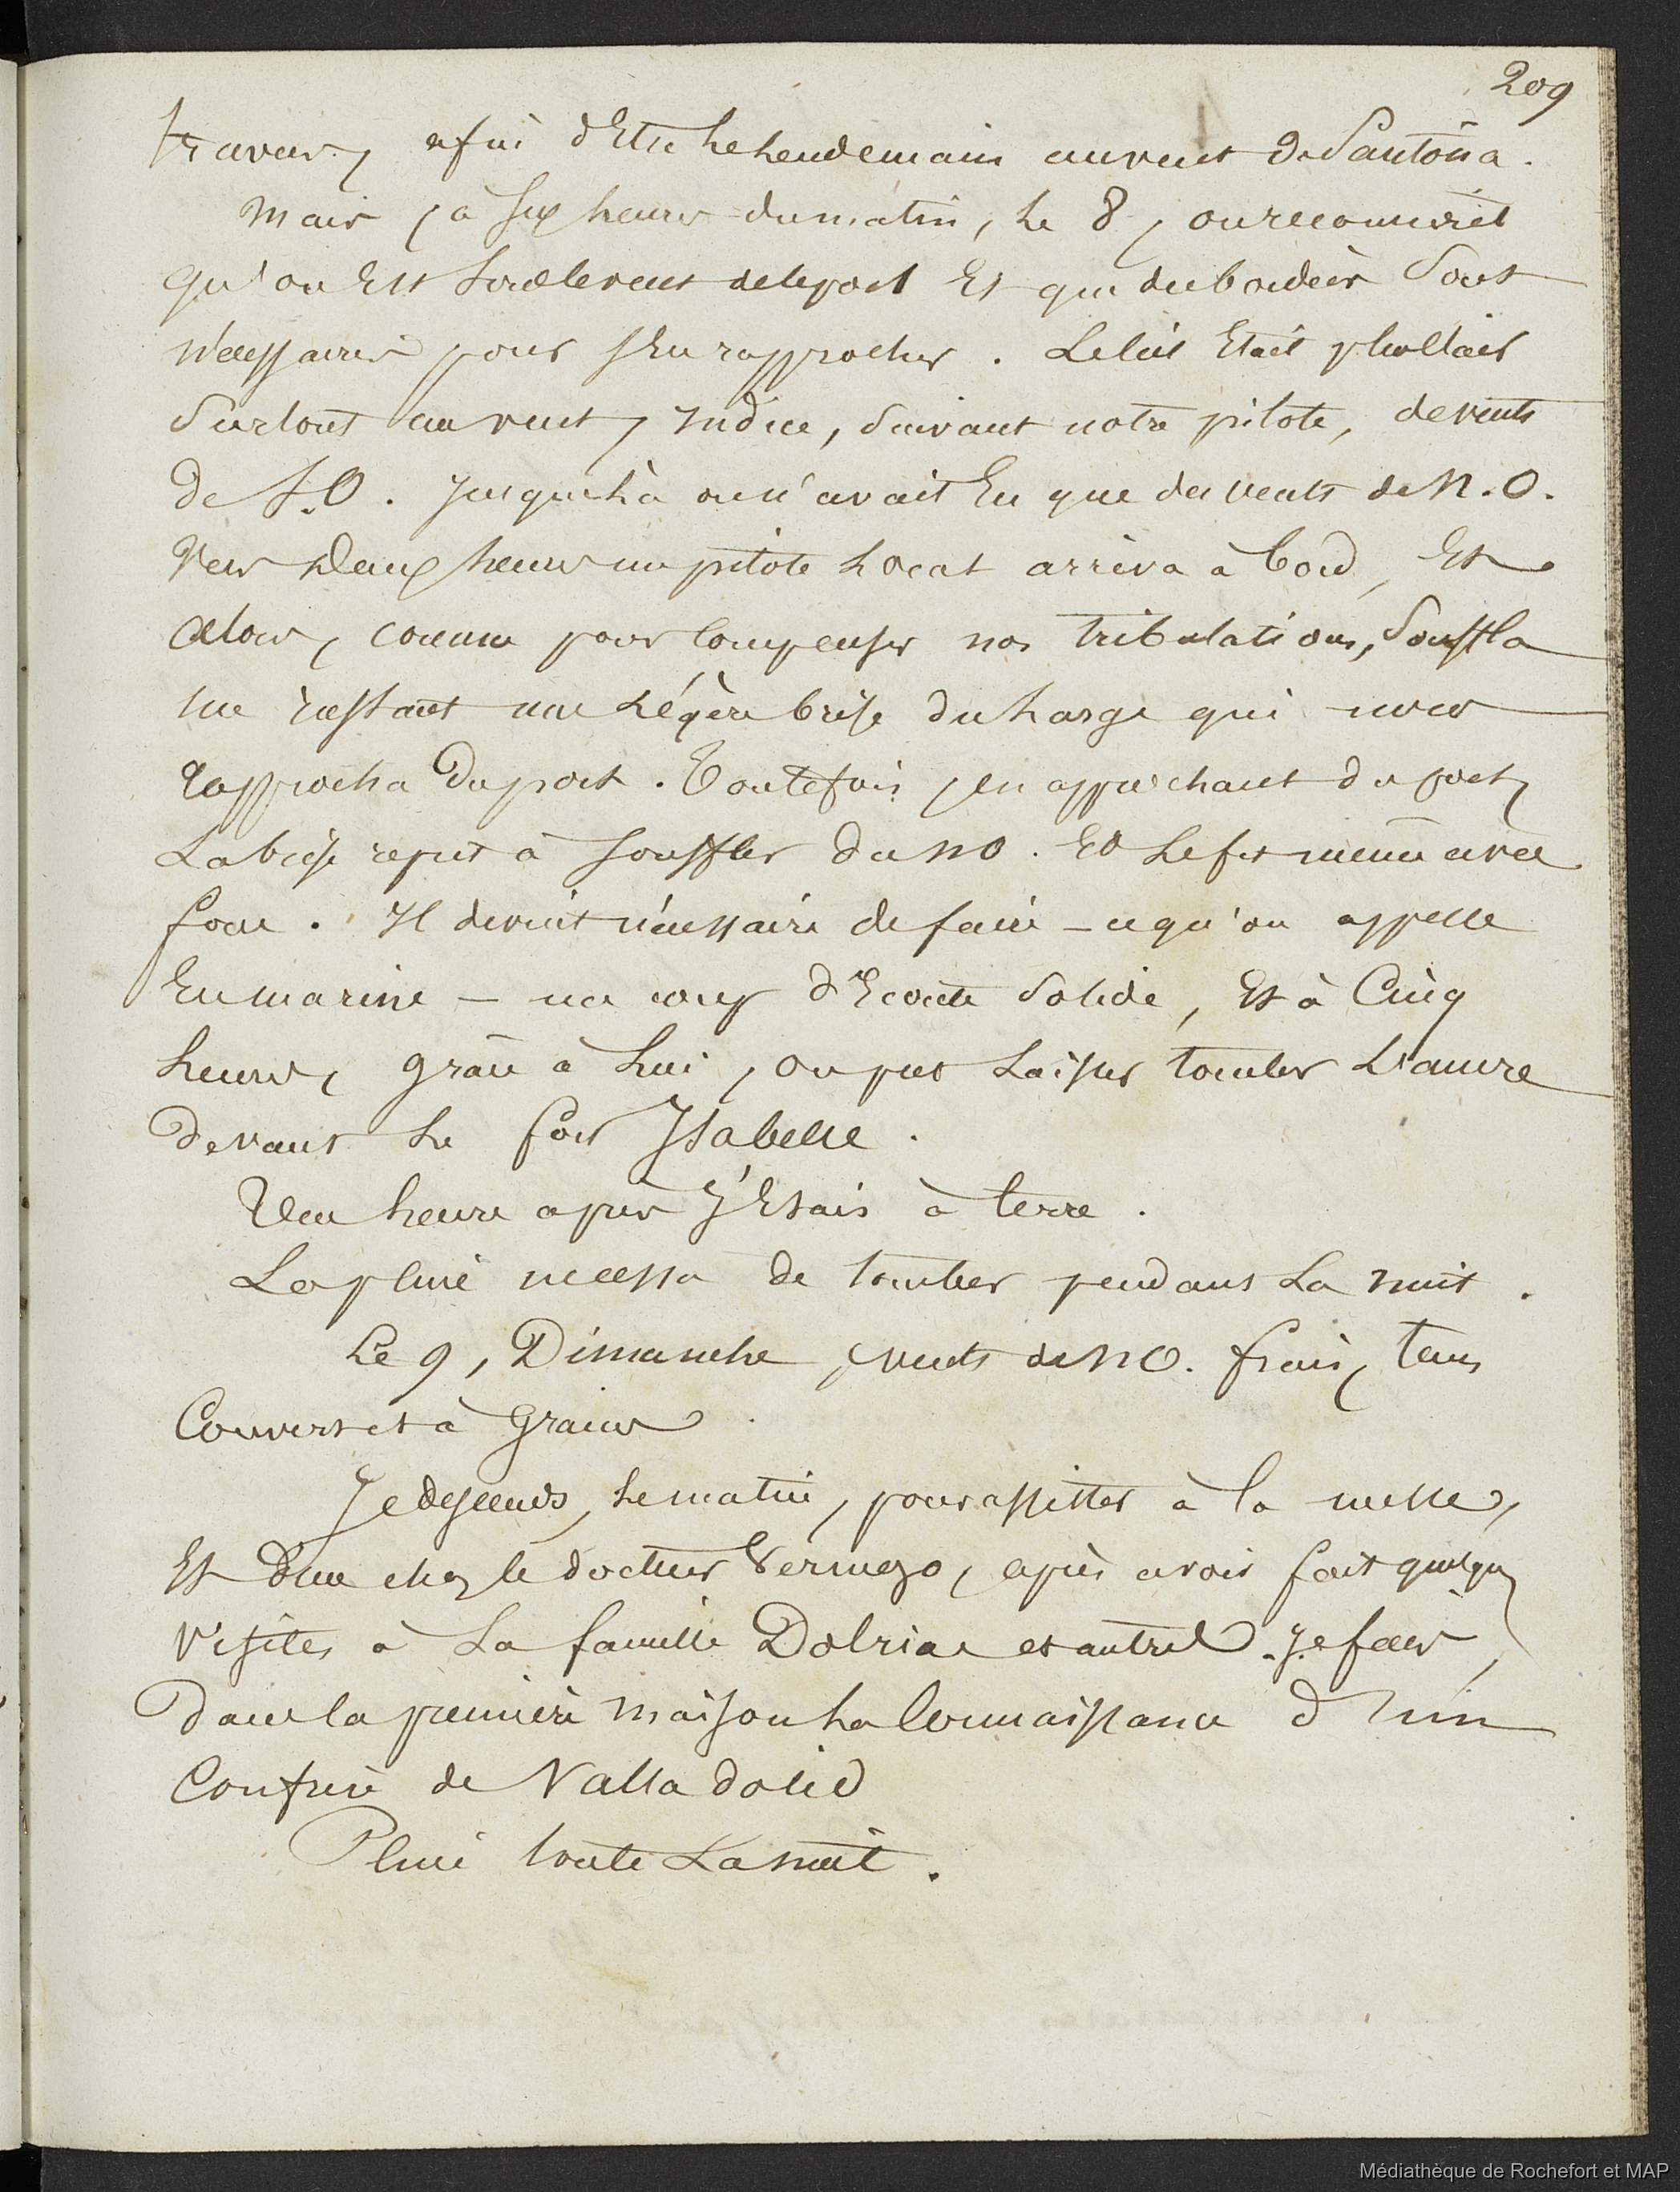 209
travers, afin d'Etre le lendemain au vent de Santõna.
Mais, à six heures du matin, le 8, on reconnaît
qu'on Est sous le vent de le port Et que des bordées sont
nécessaires pour s'En rapprocher. Le ciel Etait plus clair
surtout au vent, indice, suivant notre pilote, de vents
de S.O. jusque là on n'avait Eu que des vents de N.O.
Vers deux heures un pilote local arriva à bord, Et
alors, comme pour compenser nos tribulations, souffla
un instant une légère brise du large qui nous
rapprocha du port. Toutefois, en approchant du port,
La brise reprit à souffler du NO. Et le fit même avec
force. Il devint nécessaire de faire - ce qu'on appelle
En marine - un coup d'Ecoute solide, Et à Cinq
heures, grâce à lui, on put laisser tomber L'ancre
devant le fort Isabelle.
Une heure après j'Etais à terre.
La pluie ne cessa de tomber pendant La nuit.
Le 9, Dimanche, vents de NO. frais, tems
Couvert et à grains
Je descends, le matin, pour assister à la messe,
Et dine chez le docteur Bermejo, après avoir fait quelques
visites à La famille Dolriac et autres. Je fais,
dans la première maison la connaissance d'un
Confrère de Valladolid
Pluie toute La nuit.
Médiathèque de Rochefort et MAP